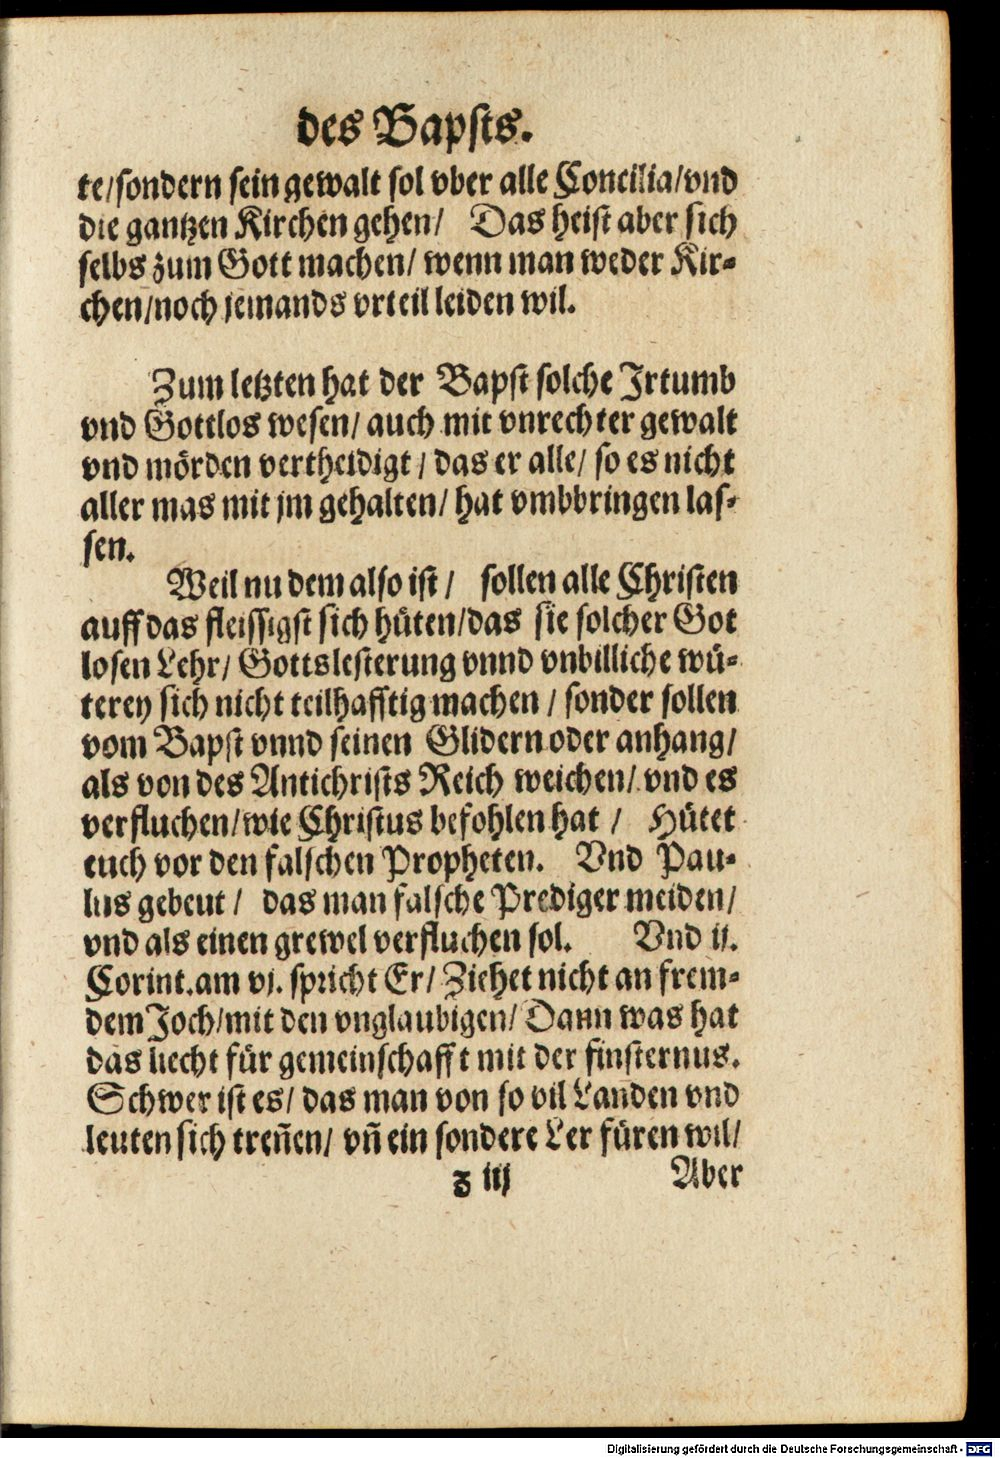 des Bapsts.
te/sondern sein gewalt sol vber alle Concilia/vnd
die gantzen Kirchen gehen/ Das heist aber sich
selbs zum Gott machen/ wenn man weder Kir-
chen/noch jemands vrteil leiden wil.
Zum letzten hat der Bapst solche Irtumb
vnd Gottlos wesen/ auch mit vnrechter gewalt
vnd mörden vertheidigt/ das er alle/ so es nicht
aller mas mit jm gehalten/ hat vmbbringen las-
sen.
Weil nu dem also ist/ sollen alle Christen
auff das fleissigst sich hüten/das sie solcher Got
losen Lehr/ Gottslesterung vnnd vnbilliche wü-
terey sich nicht teilhafftig machen / sonder sollen
vom Bapst vnnd seinen Glidern oder anhang/
als von des Antichrists Reich weichen/ vnd es
verfluchen/wie Christus befohlen hat / Hütet
euch vor den falschen Propheten. Vnd Pau-
lus gebeut / das man falsche Prediger meiden/
vnd als einen grewel verfluchen sol. Vnd ij.
Corint. am vj. spricht Er/ Ziehet nicht an frem-
dem Joch/mit den vnglaubigen/ Dann was hat
das liecht für gemeinschafft mit der finsternus.
Schwer ist es/ das man von so vil Landen vnd
leuten sich treñen/ vñ ein sondere Ler füren wil/
z iij Aber
Digitalisierung gefördert durch die Deutsche Forschungsgemeinschaft - DFG